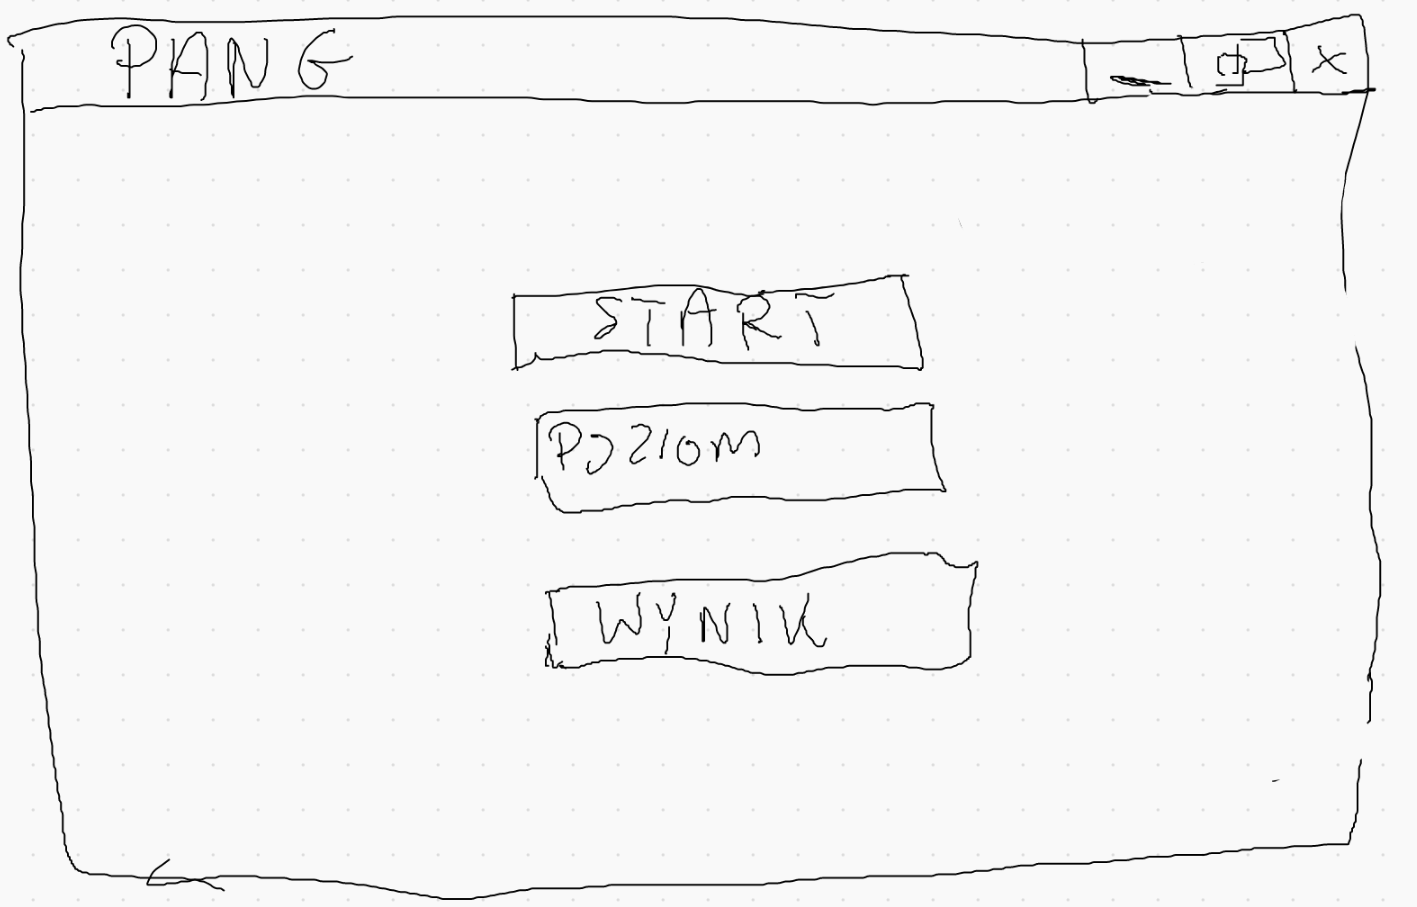 PANG
START
POZIOM
WYNIK